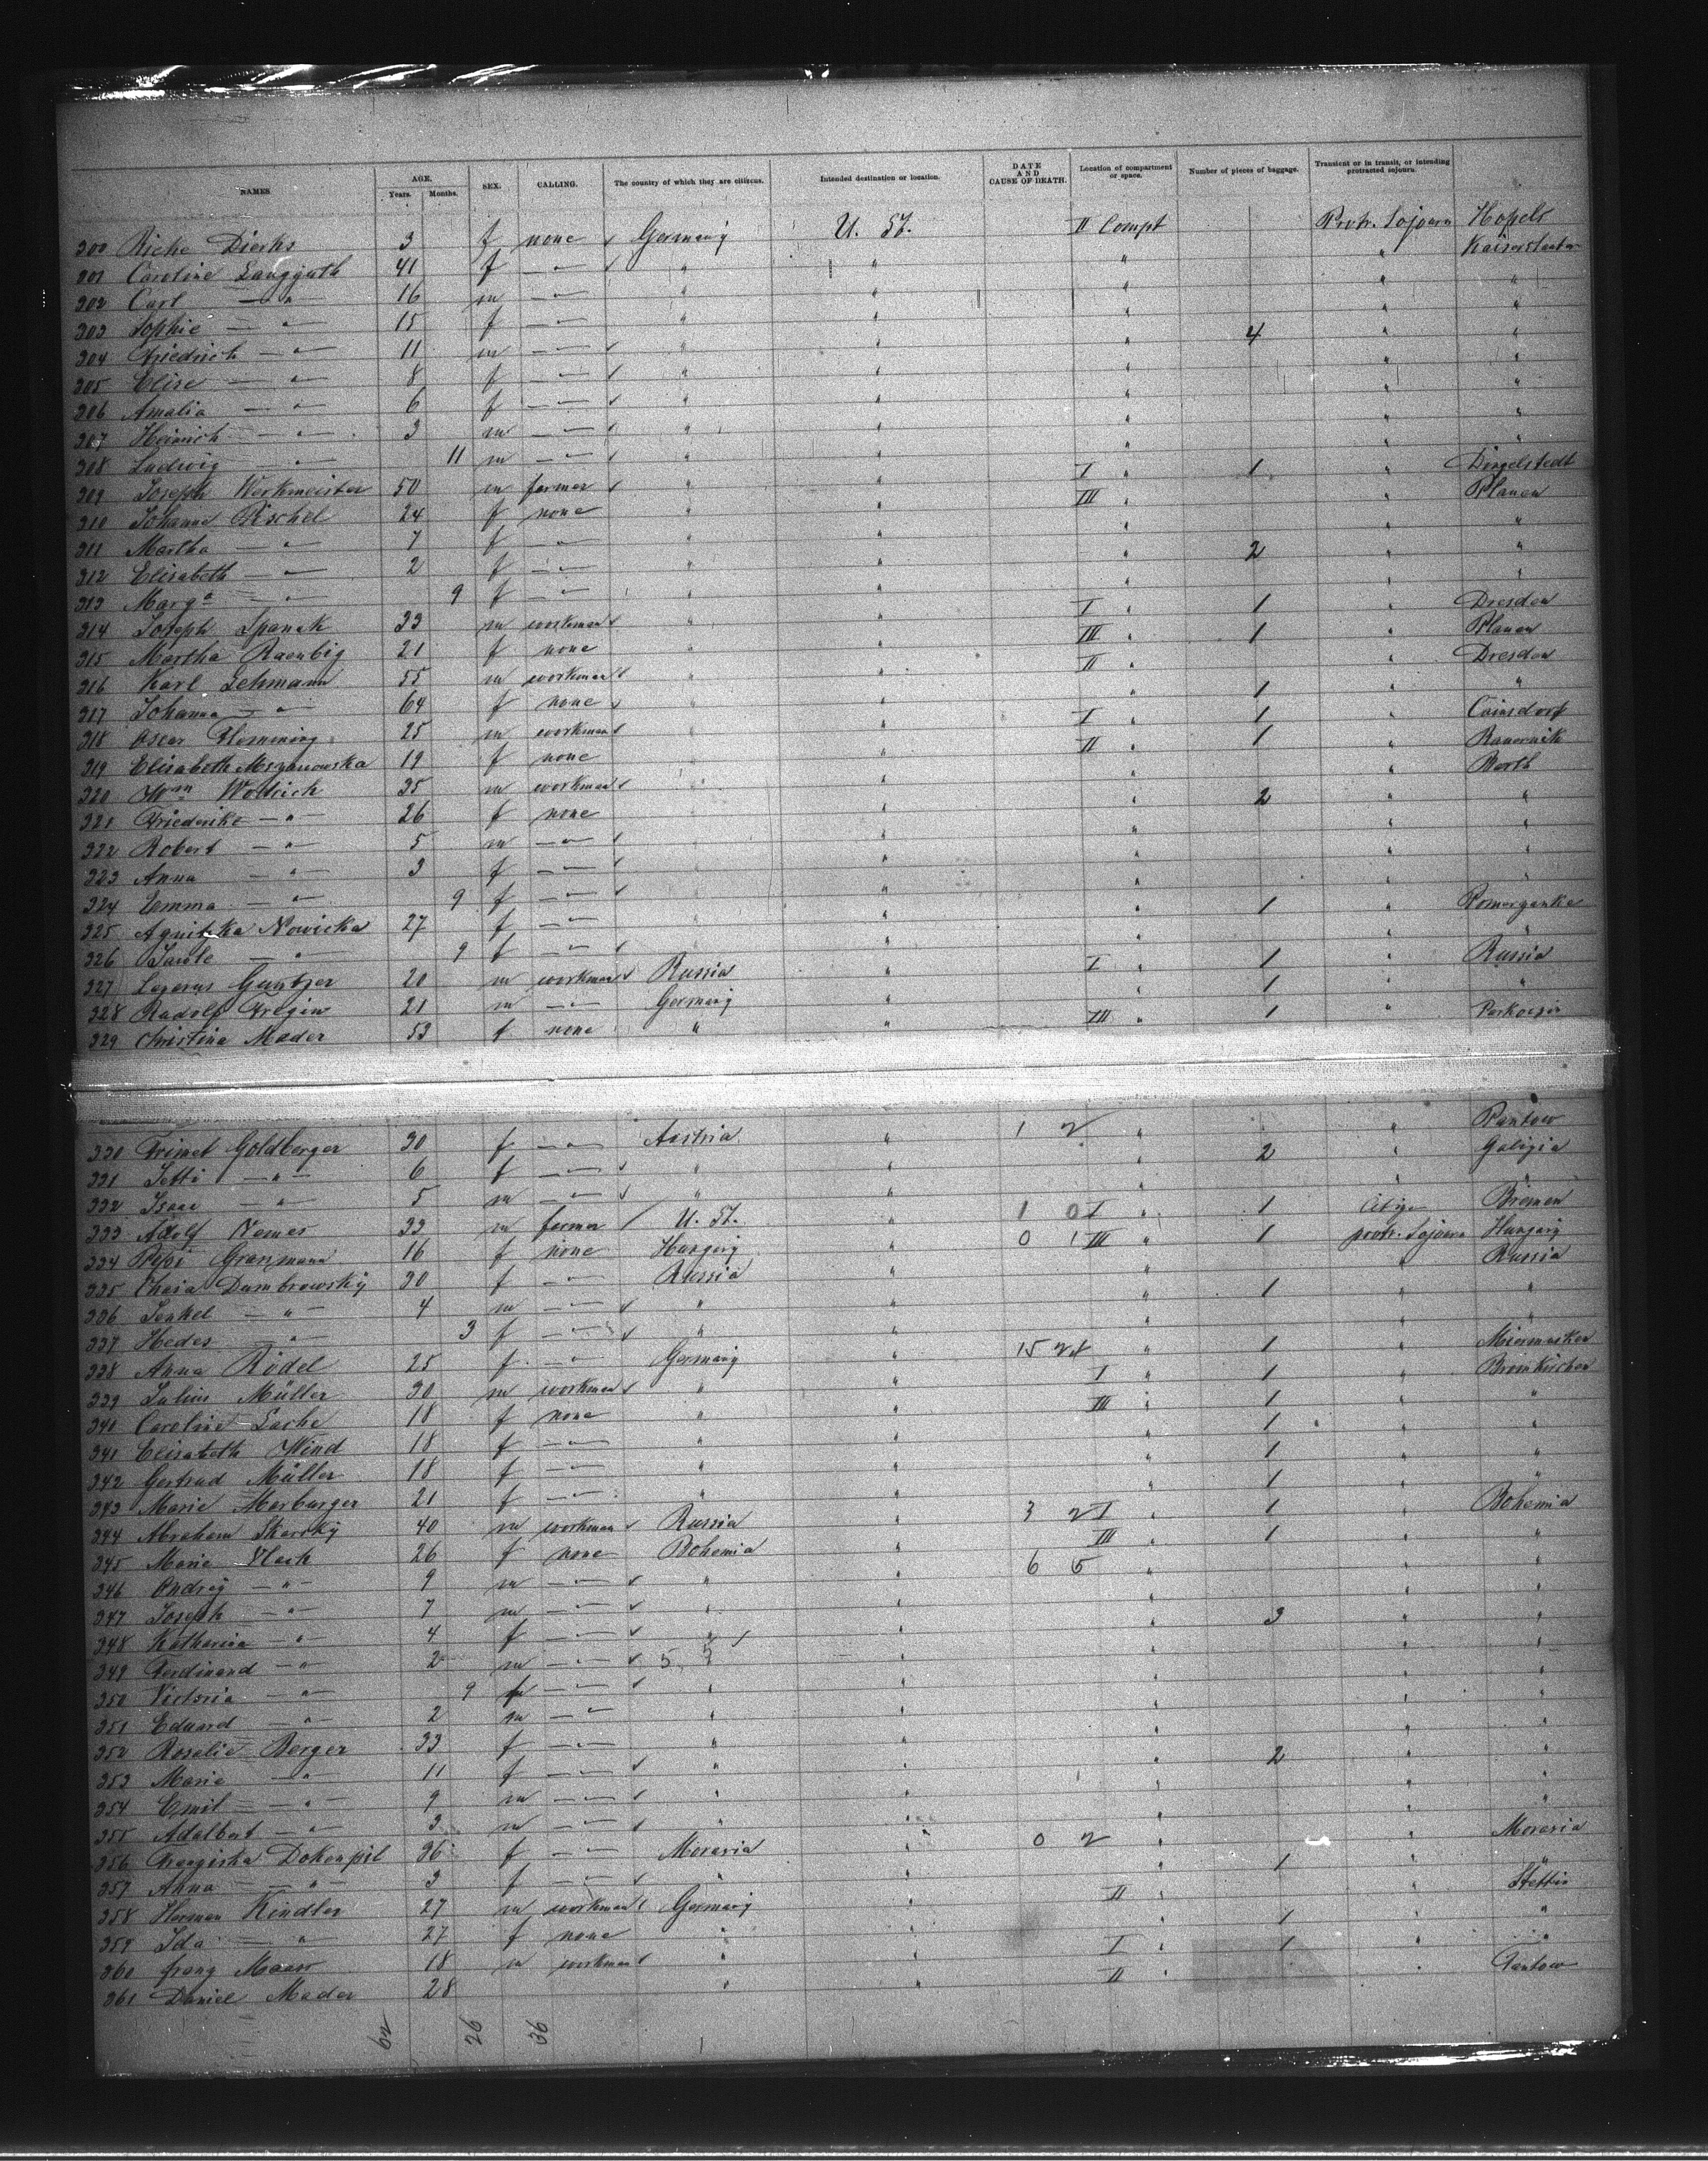 NAMES AGE. Years. Months. SEX. CALLING. The country of which they are citizens. Intended destination or location. DATE AND CAUSE OF DEATH. Location of compartment or space. Number of pieces of baggage. Transient or in transit, or intending protracted sojourn.
300 Riche Dierks 3 f none ✓ Germany U. St. II Compt Protr. Sojourn
301 Caroline Langguth 41 f — " — ✓ " " " "
302 Carl — " — 16 m — " — " " " " "
303 Sophie — " — 15 f — " — " " " " "
304 Friedrich — " — 11 m — " — ✓ " " " 4 " "
305 Elise — " — 8 f — " — ✓ " " " " "
306 Amalia — " — 6 f — " — ✓ " " " " "
307 Heinrich — " — 3 m — " — ✓ " " " " "
308 Ludwig — " — 11 m — " — ✓ " " " " "
309 Joseph Werkmeister 50 m farmer ✓ " " I " 1 " Dingelstedt
310 Johanne Pischel 24 f none " " III " " Plauen
311 Martha — " — 7 f — " — " " " " "
312 Elisabeth — " — 2 f — " — " " " 2 " "
313 Marg.a — " — 9 f — " — " " " " "
314 Joseph Spanek 33 m workman ✓ " " I " 1 " Dresden
315 Martha Raenbig 21 f none " " III " 1 " Plauen
316 Karl Lehmann 55 m workman ✓ " " II " " Dresden
317 Johanna — " — 64 f none ✓ " " " 1 " "
318 Oscar Flemming 25 m workman ✓ " " I " 1 " Cainsdorf
319 Elisabeth Mszanowska 19 f none " " II " 1 "
320 Wm Wollrich 35 m workman ✓ " " " " Barth
321 Friederike — " — 26 f none " " " 2 " "
322 Robert — " — 5 m — " — ✓ " " " " "
323 Anna — " — 3 f — " — ✓ " " " " "
324 Emma — " — 9 f — " — ✓ " " " " "
325 Agnitzka Nowicka 27 f — " — " " " 1 "
326 — " — 9 f — " — ✓ " " " " "
327 Lazarus Guntzer 20 m workman ✓ Russia " I " 1 " Russia
328 Rudolf Fregin 21 m — " — Germany " " 1 " "
329 Christina Mader 53 f none " " III " 1 "
330 Frimet Goldberger 30 f — " — Austria " 1 2 " "
331 Jetti — " — 6 f — " — ✓ " " " 2 " Galizia
332 Isaac — " — 5 m — " — ✓ " " " " "
333 Adolf Nemes 33 m farmer ✓ U. St. " 1 0 I " 1 Bremen
334 Pepi Granzmann 16 f none Hungary " 0 1 III " 1 protr. Sojourn Hungary
335 Chaia Dumbrowsky 30 f — " — Russia " " " Russia
336 Jankel — " — 4 m — " — ✓ " " " 1 " "
337 Hedes — " — 3 f — " — ✓ " " " " "
338 Anna Rödel 25 f — " — Germany " " 1 "
339 Julius Müller 30 m workman ✓ " " I " 1 "
340 Caroline Lache 18 f none " " III " 1 " "
341 Elisabeth Wind 18 f — " — " " " 1 " "
342 Gertrud Müller 18 f — " — " " " 1 " "
343 Marie Marburger 21 f — " — " " " 1 " "
344 Abraham Skarsky 40 m workman ✓ Russia " 3 2 I " 1 " Bohemia
345 Marie Vlach 26 f none Bohemia " III " 1 " "
346 Ondrej — " — 9 m — " — ✓ " " 6 5 " " "
347 Joseph — " — 7 m — " — ✓ " " " " "
348 Katharina — " — 4 f — " — ✓ " " " 3 " "
349 Ferdinand — " — 2 m — " — ✓ " " " " "
350 Victoria — " — 9 f — " — ✓ " " " " "
351 Eduard — " — 2 m — " — " " " " "
352 Rosalie Berger 33 f — " — " " " " "
353 Marie — " — 11 f — " — ✓ " " " 2 " "
354 Emil — " — 9 m — " — ✓ " " " " "
355 Adalbert — " — 3 m — " — ✓ " " " " "
356 Dokoupil 36 f — " — Moravia " 0 2 " " Moravia
357 Anna — " — 3 f — " — ✓ " " " 1 " "
358 Herman Kindler 27 m workman ✓ Germany " II " " Stettin
359 Ida — " — 27 f none " " " 1 " "
360 Franz Maass 18 m workman ✓ " " I " 1 " "
361 Daniel Mader 28 " " II " " Tantow
62 26 36